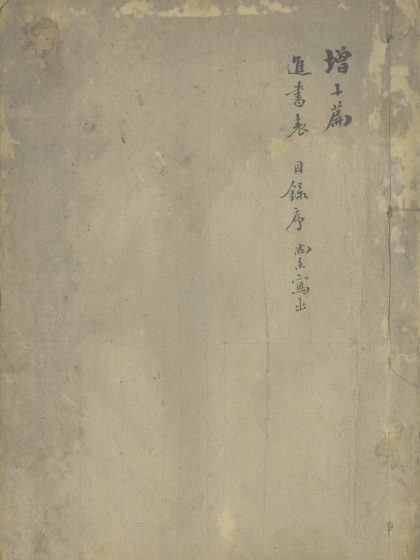 增十篇
進書表 目錄序 尚未寫出